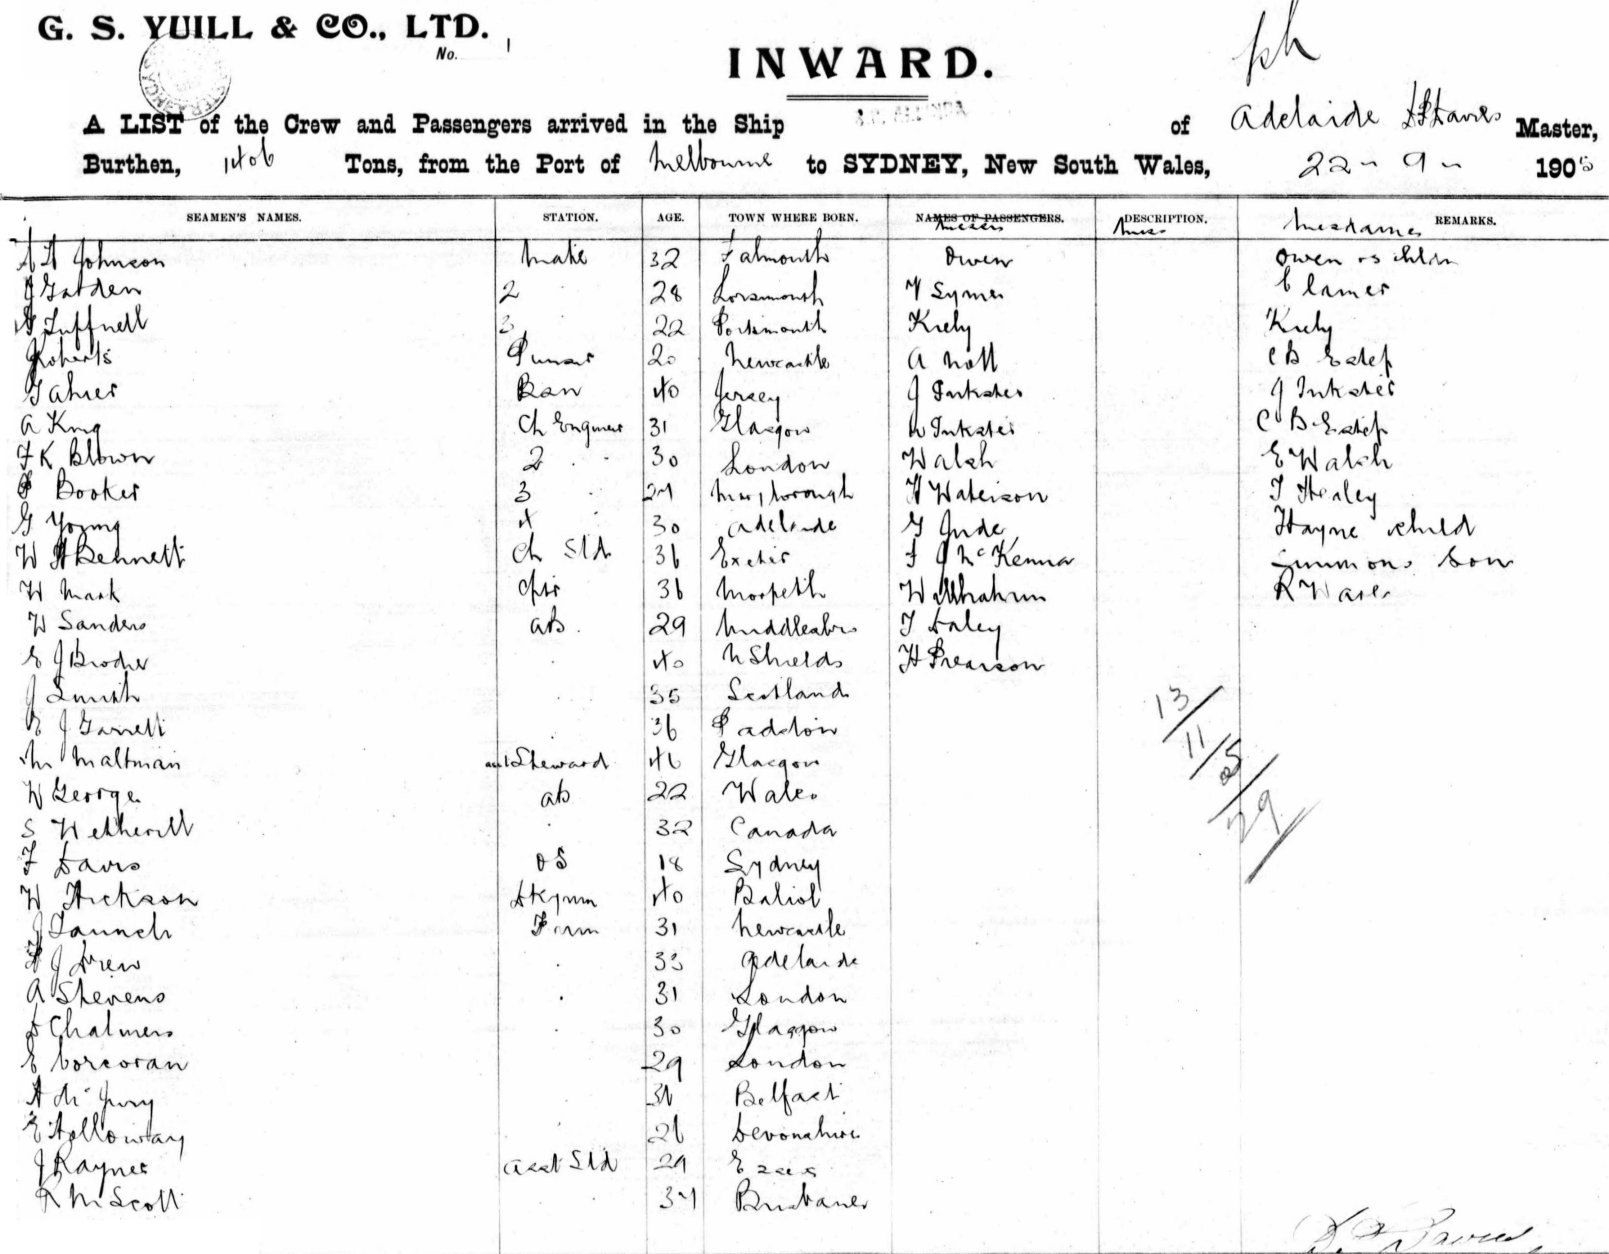 G. S. YUILL & CO., LTD.
No. 1
INWARD.
A LIST of the Crew and Passengers arrived in the Ship of Adelaide Davies Master,
Burthen, 1406 Tons, from the Port of Melbourne to SYDNEY, New South Wales, 22 - 9 - 1905
SEAMEN'S NAMES. STATION. AGE. TOWN WHERE BORN. NAMES OF PASSENGERS. DESCRIPTION. REMARKS.
Messrs Miss Mesdames
Johnson Mate 32 Falmouth Owen Owen
2 28 Symes
Tuffnell 3 22 Portsmouth Kiely Kiely
Roberts Purser 20 Newcastle A Nott C B Estep
40 Jersey J Inkster J Inkster
A King Ch Engineer 31 Glasgow Inkster C B Estep
F K Blown 2 30 London Walsh E Walsh
Booker 3 27 Maryborough H Waterson T Healey
G Young 4 30 Adelaide G Jude Hayne child
W H Bennett Ch Std 36 Exeter F J McKenna Simmons Son
W Mark 36 Morpeth W R Ware
W Sanders AB. 29 Middlesbro T Daley
E J 40 N Shields H Pearson
J Smith 35 Scotland
E J Garrett 36
M Maltman Steward 46 Glasgow
W George AB 22 Wales
S Wetherill 32 Canada
F Davis OS 18 Sydney
W Hickson Dkymn 40
J Faunch Firm 31 Newcastle
J Drew 33 Adelaide
A Stevens 31 London
D Chalmers 30 Glasgow
E Corcoran 29 London
A 36 Belfast
E Holloway 26 Devonshire
J Rayner Asst Std 29 Essex
R M Scott 37 Brisbane
13
11/05
29